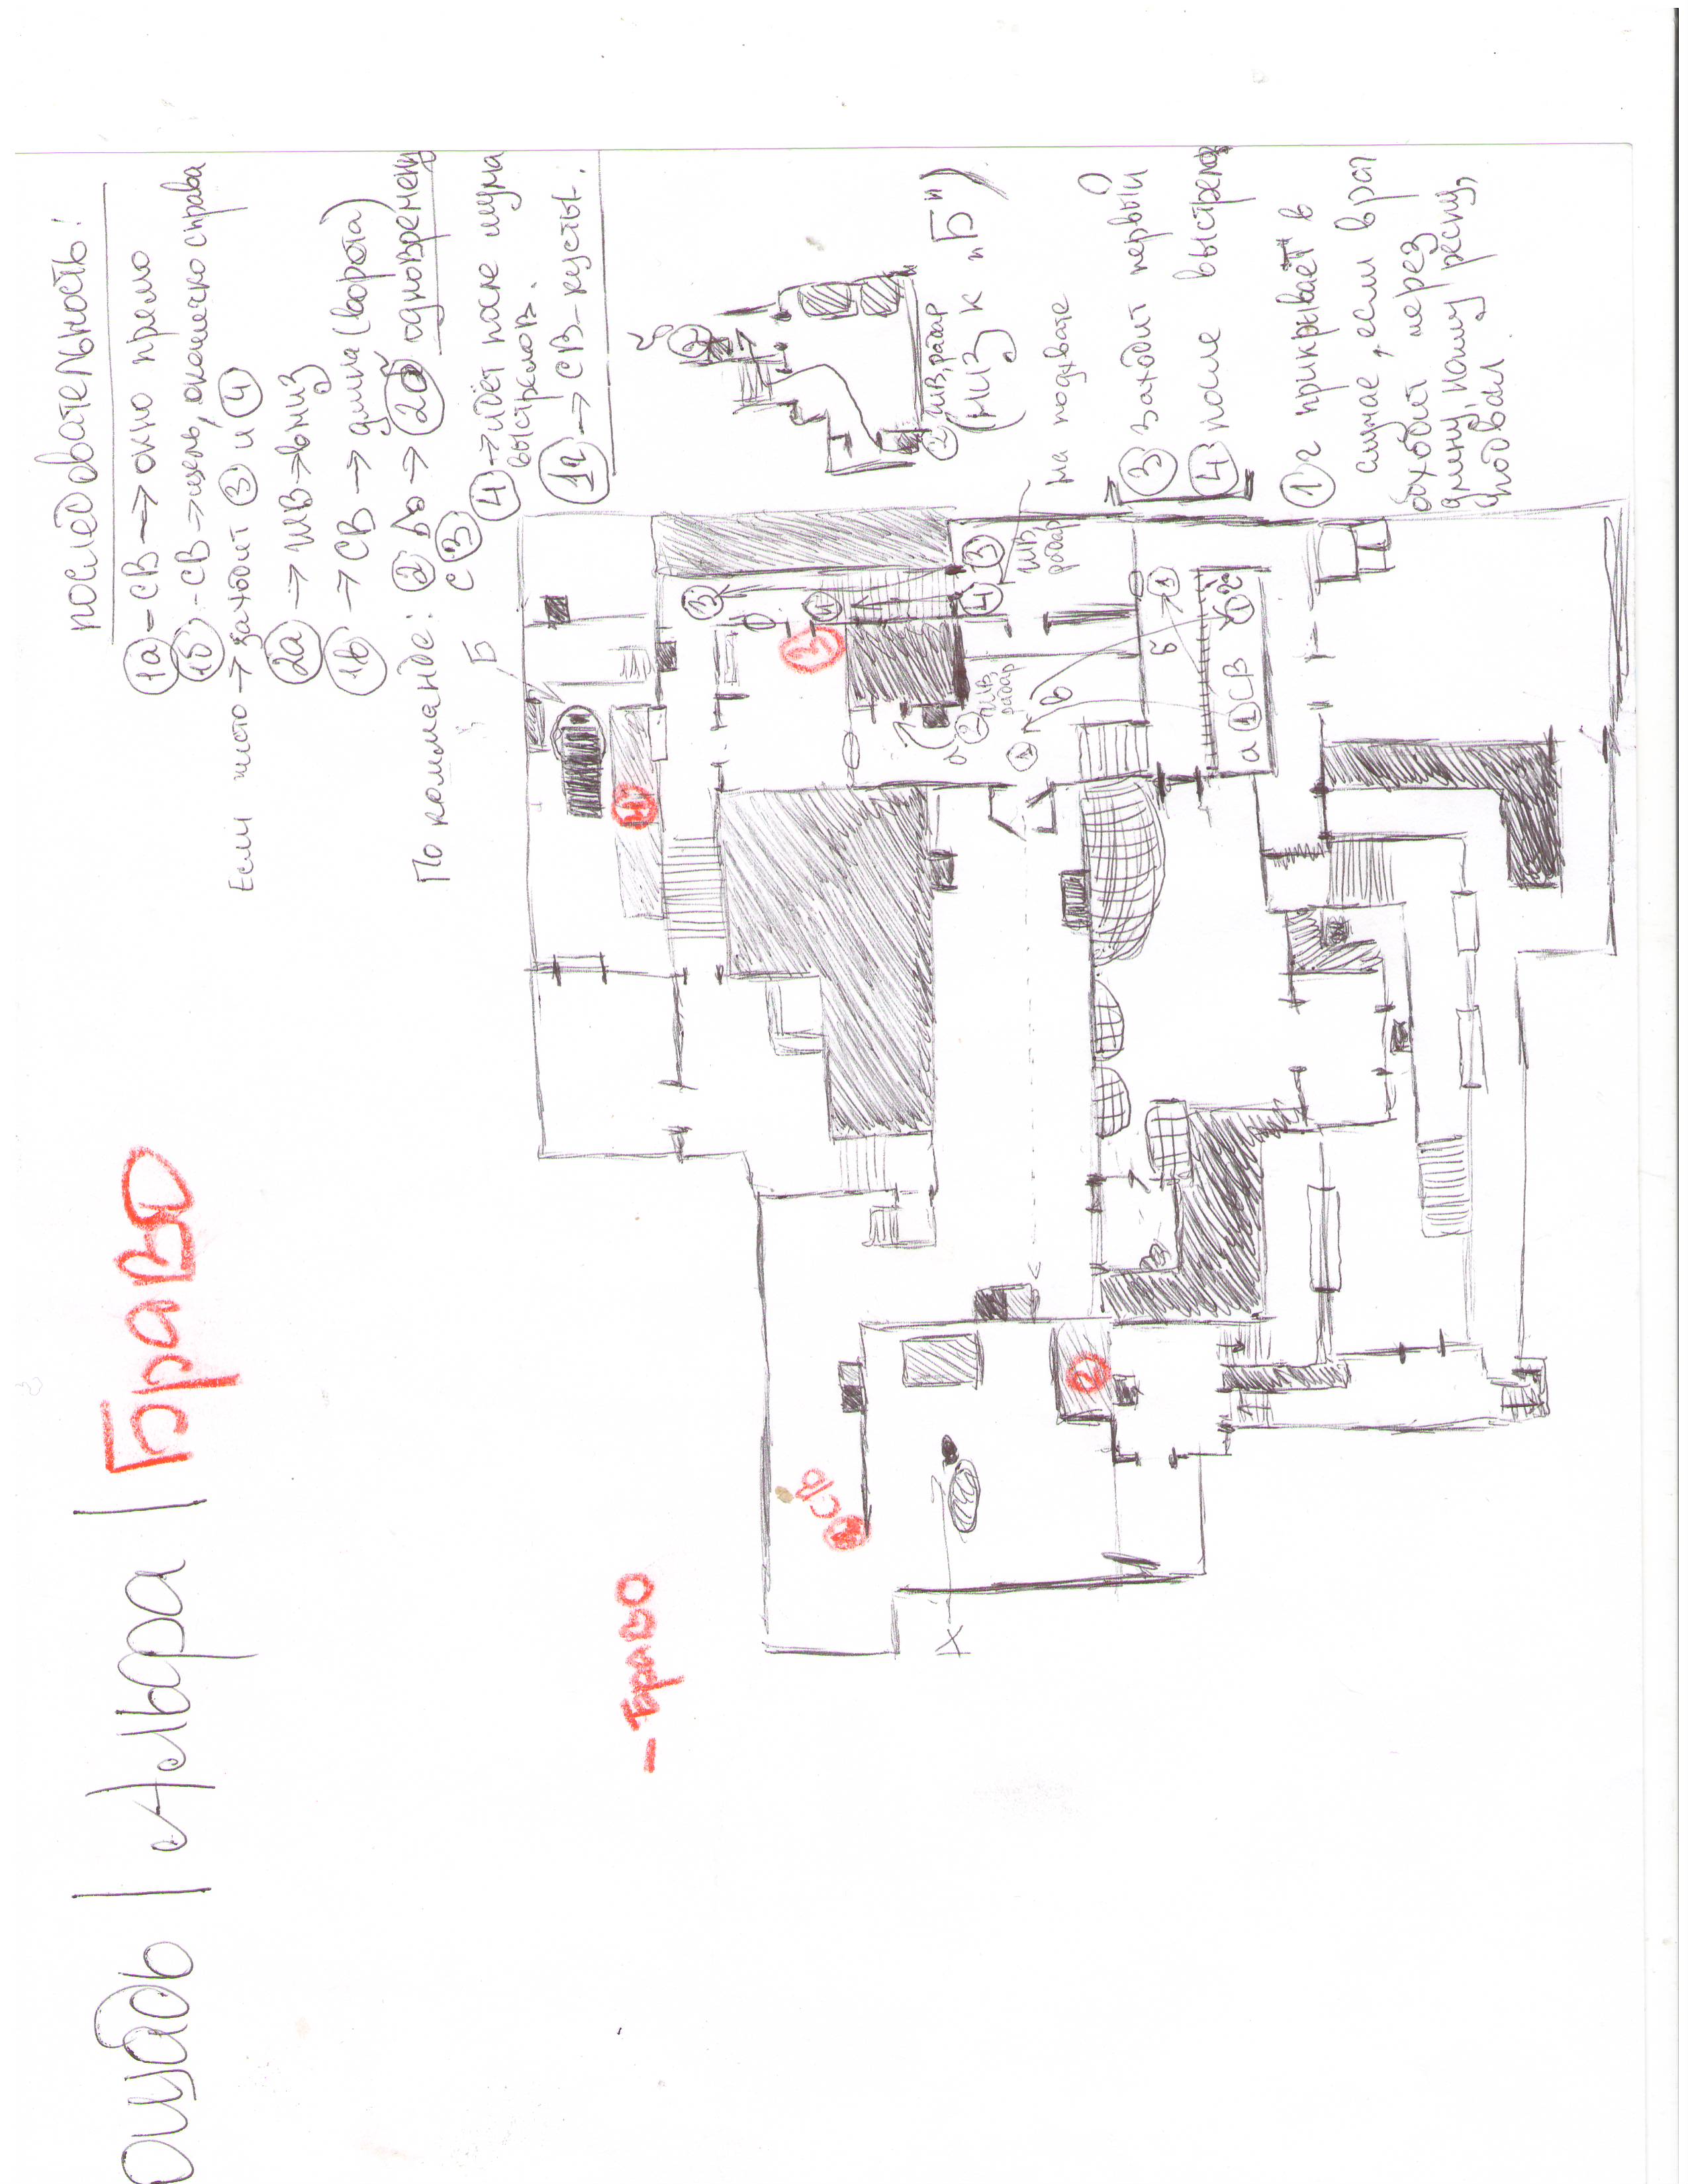 ощадь | Альфа | Браво
последовательность!
1а - СВ → окно прямо
1б - СВ → щель, окошечко справа
Если чисто → заходит 3 и 4
2а → ШВ → вниз
1в → СВ → длина (ворота)
По комманде: 2 до → 2б одновременно
с 3
4 → идёт после шума
выстрелов.
1г → СВ - кусты.
2
2 ШВ, радар
(НИЗ к "Б")
На подхвате
3 Заходит первый
4 после выстрелов
1г прикрывает в
случае, если враг
обходит через
длину, нашу респу,
подвал.
- Браво
Б
3
4
3
4
3
4
ШВ,
радар
2 ШВ,
радар
б
1 г
в
б
1
а 1 СВ
1 СВ
2
А